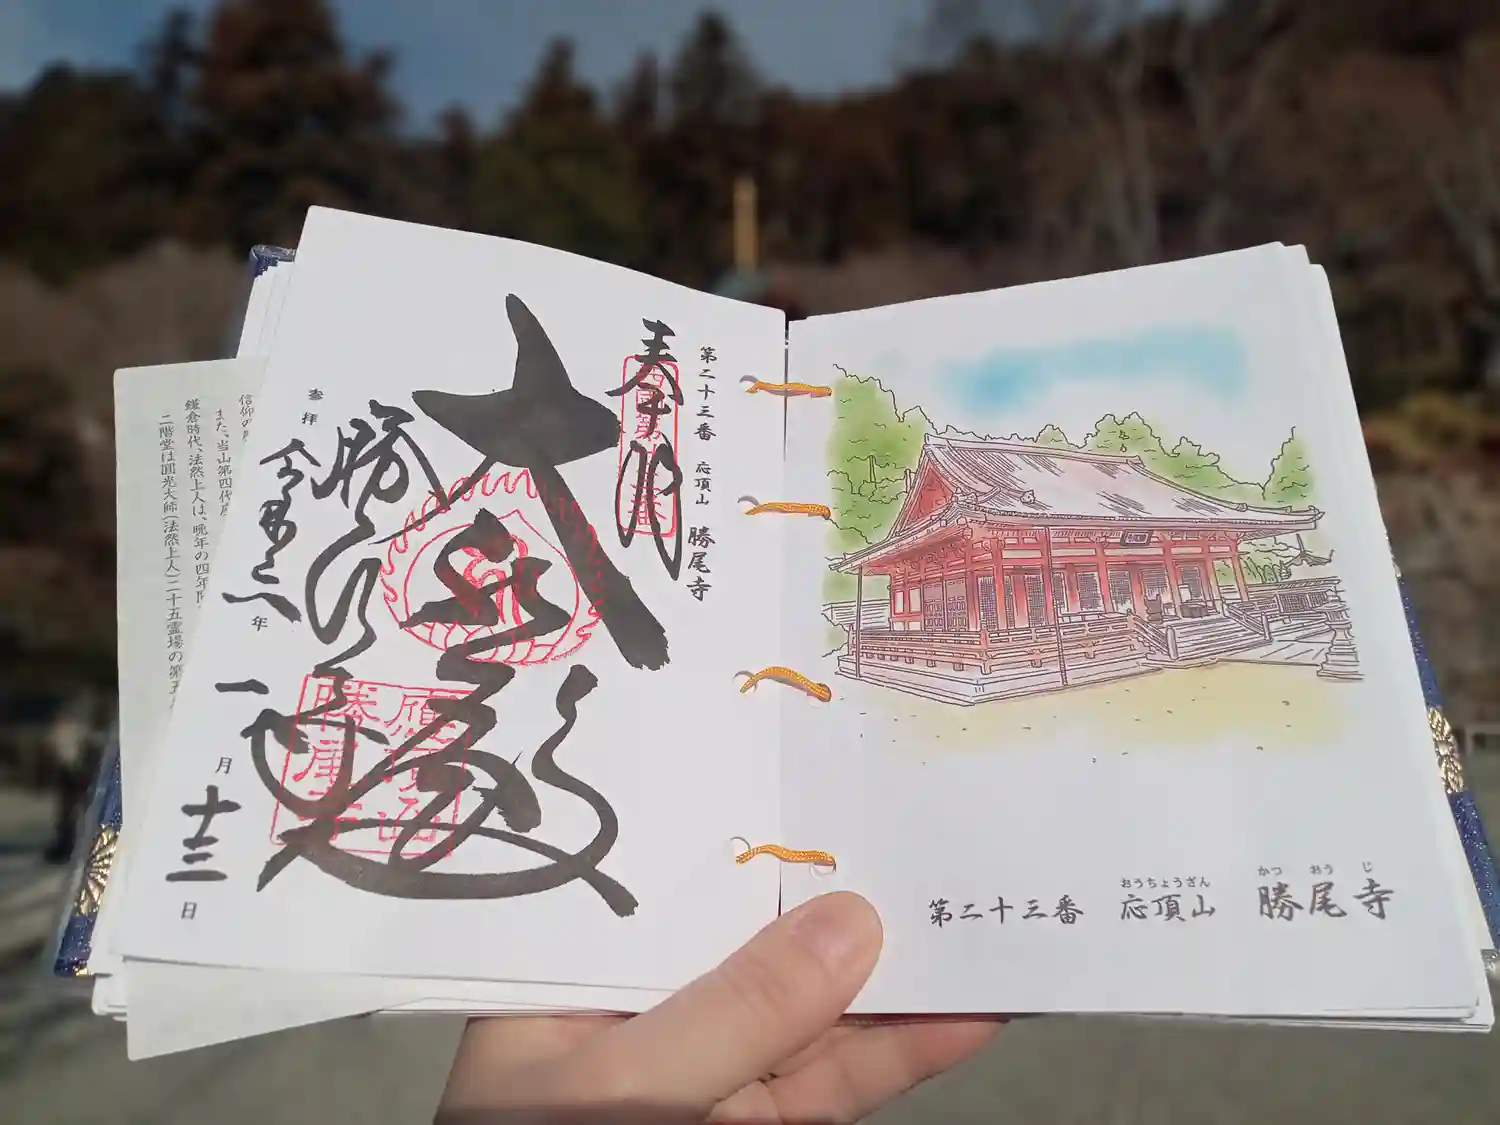 第二十三番 応頂山 勝尾寺
奉拝
西国第廿三番
大悲殿
勝尾寺
應頂山
勝尾寺
参拝 令和二年 一月 十三日
信仰の
また、当山第四代座
鎌倉時代、法然上人は、晩年の四年間
二階堂は圓光大師(法然上人)二十五霊場の第五
第二十三番 応頂山 勝尾寺
おうちょうざん かつおうじ